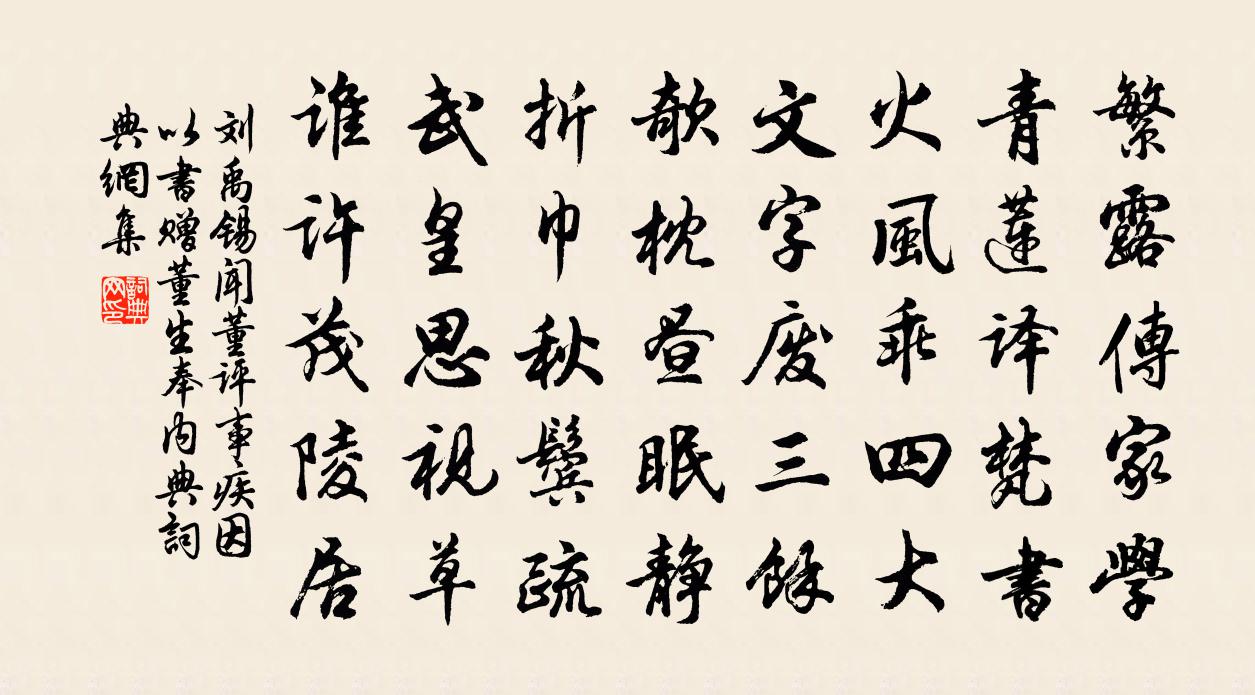 繁露傳家學
青蓮译梵書
火風乖四大
文字廢三餘
欹枕昼眠静
折巾秋鬓疏
武皇思視草
谁许茂陵居
刘禹锡闻董评事疾因
以書赠董生奉内典詞
典網集
詞典
网印